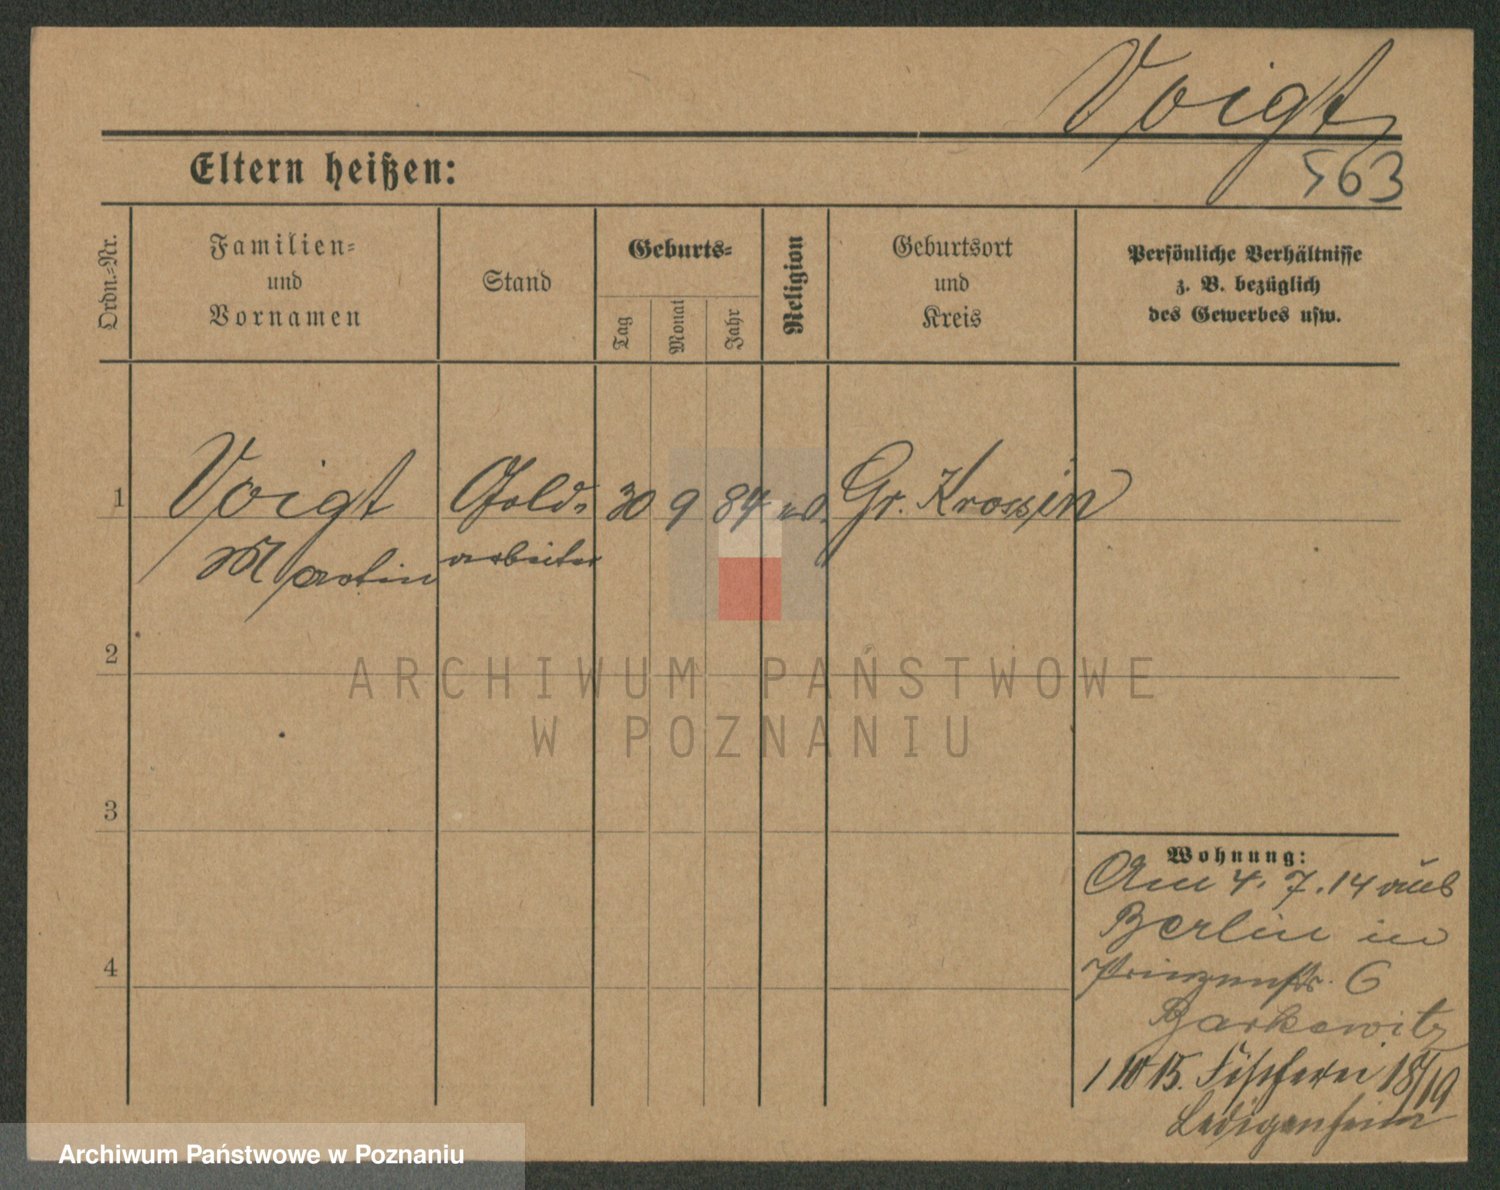 Voigt
563
Eltern heißen:
Ordn.=Nr.
Familien=
und
Vornamen
Stand
Geburts=
Tag
Monat
Jahr
Religion
Geburtsort
und
Kreis
Persönliche Verhältnisse
z. B. bezüglich
des Gewerbes usw.
1 Voigt Gold= 30 9 84 Gr. Krossin
Martin arbeiter
2
3
4
ARCHIWUM PAŃSTWOWE
W POZNANIU
Wohnung:
Am 4. 7. 14 aus
Berlin in
Prinzenstr. 6
Barkowitz
1 10 15. Fischerei 18/19
Ledigenheim
Archiwum Państwowe w Poznaniu